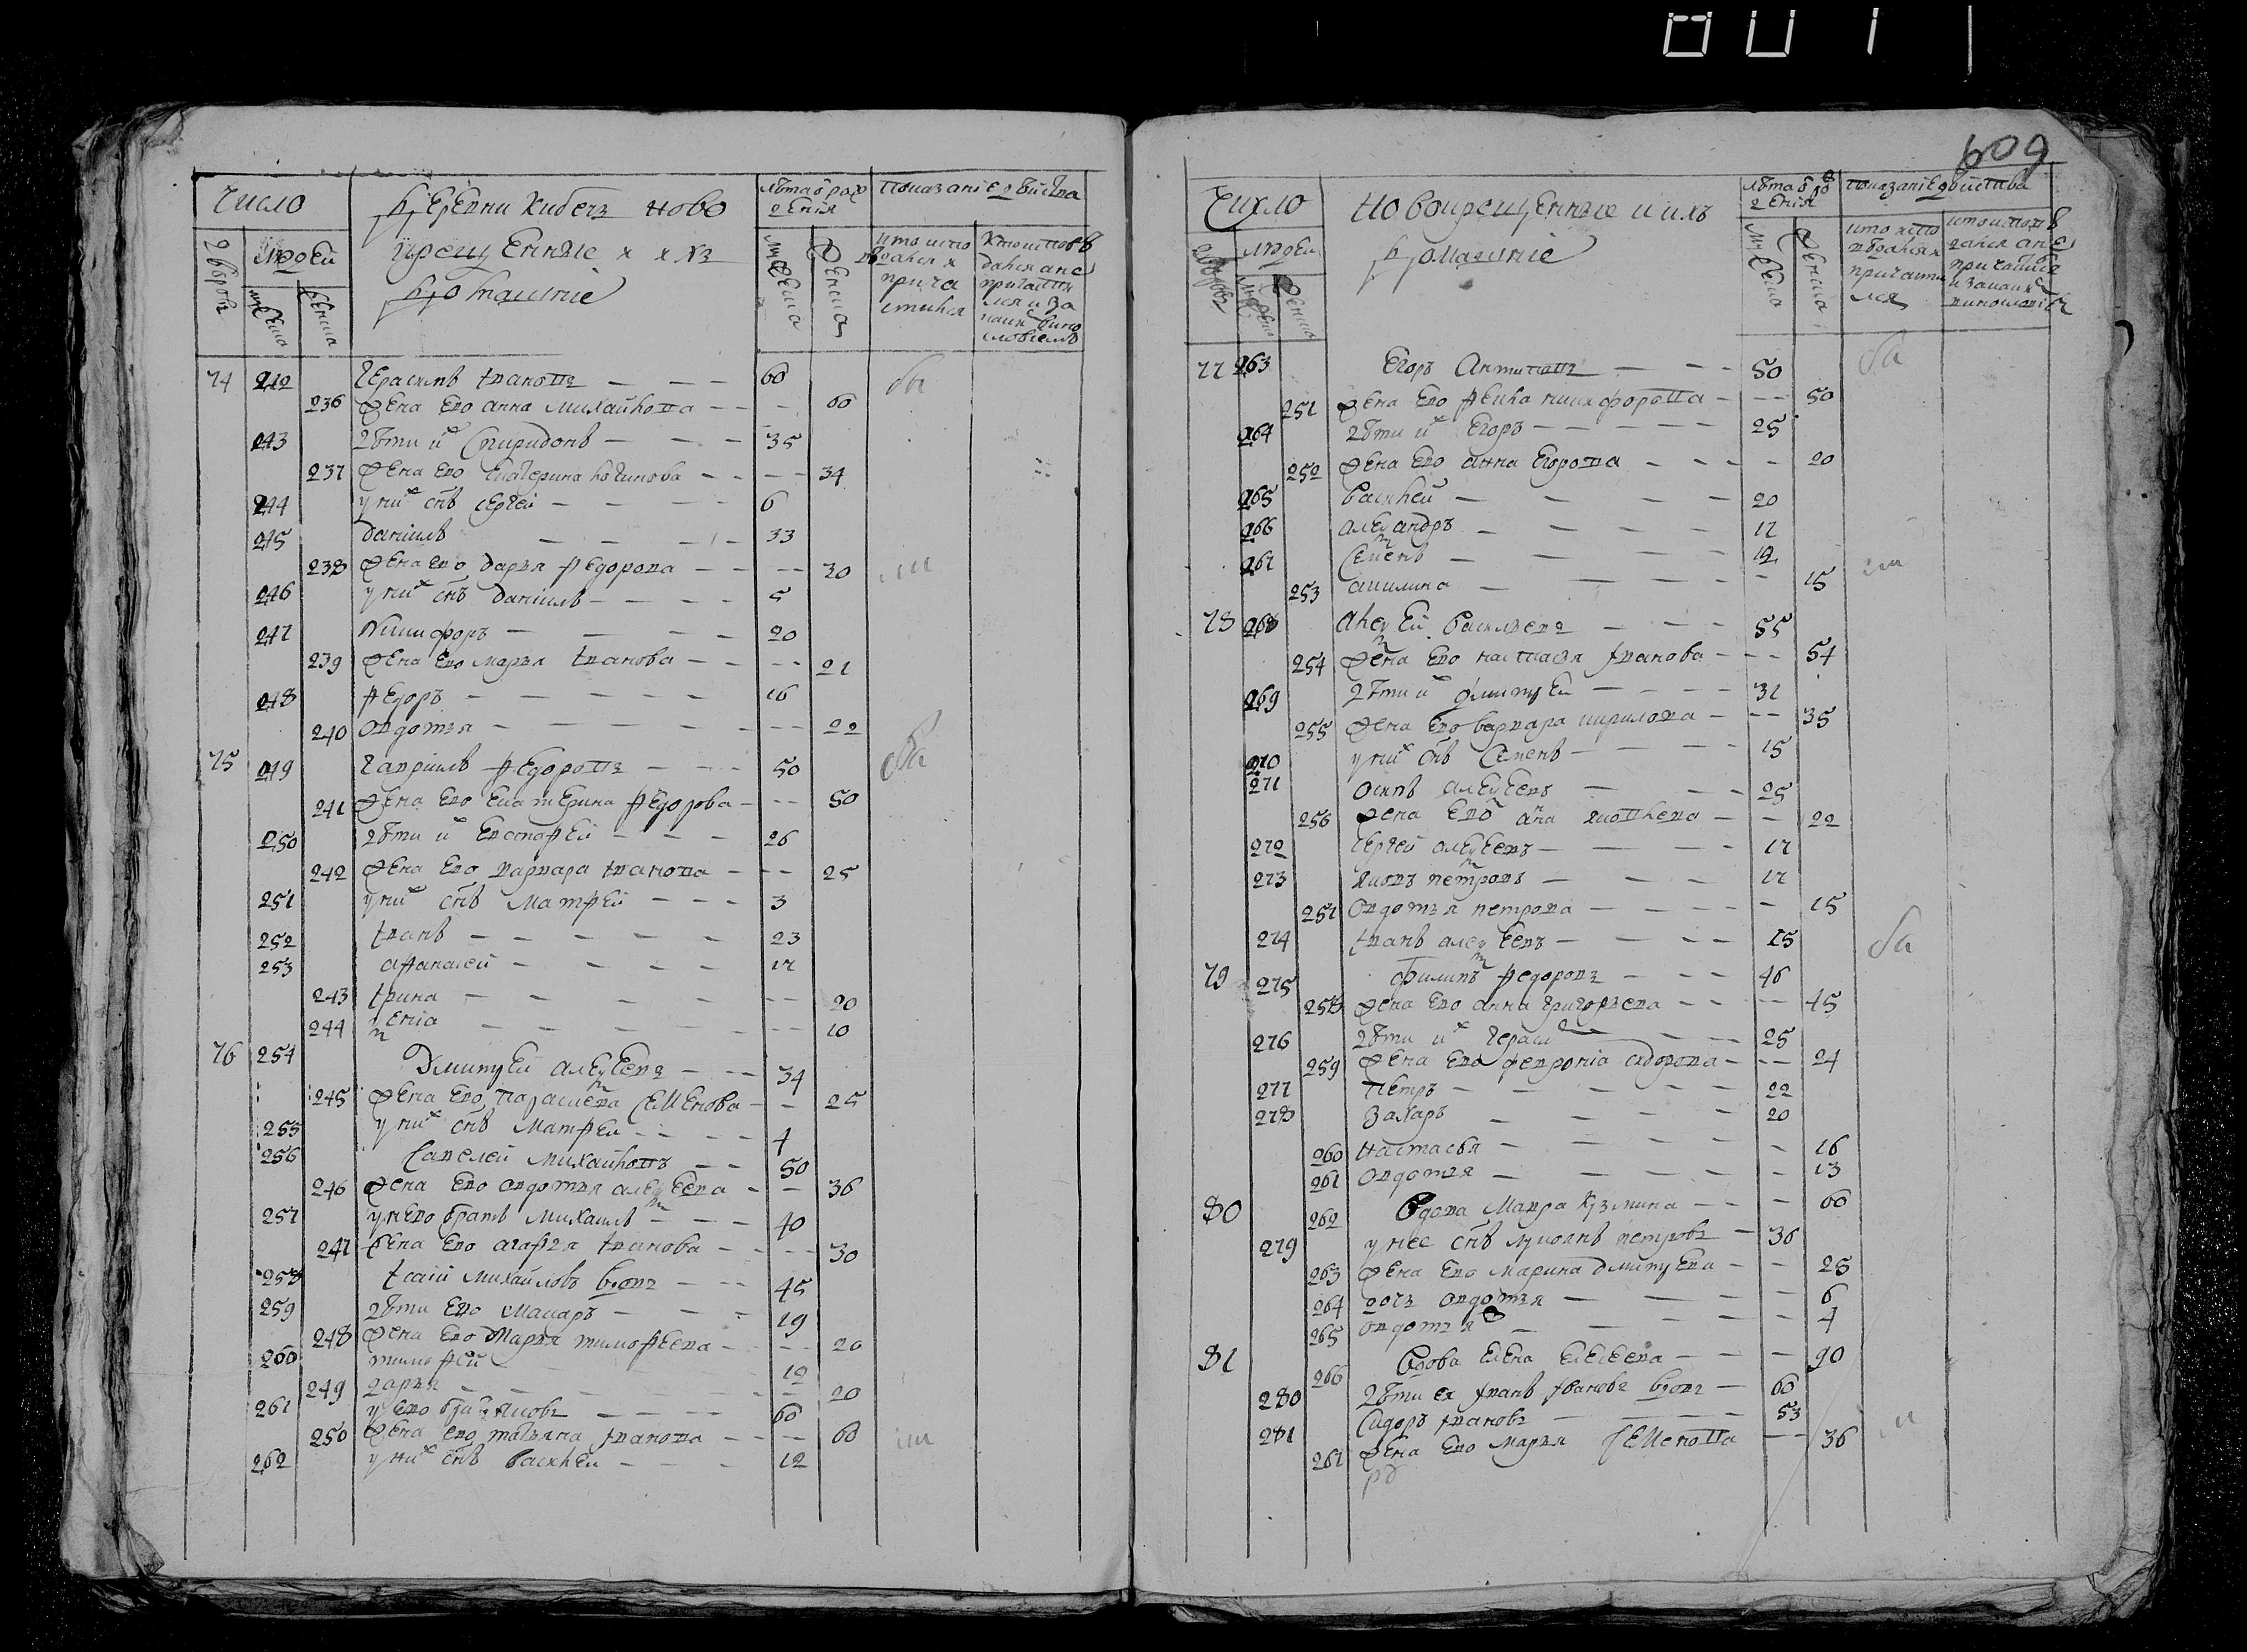 609
число
деревни кибечъ ново
крещенные и ихъ
домашніе
лѣта о рож
денія
показаніе дѣйства
дворовъ
людей
мужеска
женска
мужеска
женска
кто испо
ведался и
прича
стился
кто испове
дался а не
причастил
ся и за
каким вино
словіемъ
74 242 Герасимъ Ивановъ 60
236 Жена ево анна Михайлова 60
243 дѣти их Спиридонъ 35
237 Жена ево Екатерина логинова 34
244 у них снъ сергеи 6
245 даниилъ 33
238 Жена ево дарья федорова 30
246 у них снъ даниилъ 5
247 Никифоръ 20
239 Жена ево марья Иванова 21
248 федоръ 16
240 овдотья 22
75 249 гавриилъ федоровъ 50
241 Жена ево екатерина федорова 50
250 дѣти их Евстафеи 26
242 Жена ево варвара Иванова 25
251 у них снъ Матфеи 3
252 Иванъ 23
253 афанасеи 17
243 Ирина 20
244 10
76 254 Дмитреи алексеевъ 34
245 Жена ево парасковя Семенова 25
255 у них снъ Матфеи 4
256 Савелеи Михайловъ 50
246 Жена ево овдотья алексеева 36
257 у нево братъ Михаилъ 40
247 Жена ево агафья Иванова 30
258 Исаіи михайловъ вдовъ 45
259 дѣти ево Макаръ 19
248 Жена ево Марья тимофеева 20
260 тимофеи 12
249 дарья 20
261 у ево братъ яковъ 60
250 Жена ево татьяна Иванова 60
262 у них снъ василеи 12
число
новокрещенные и ихъ
домашніе
лѣта о ро
денія
показаніе дѣиства
дворовъ
людеи
мужеска
женска
мужеска
женска
кто испо
ведался и
причасти
лся
кто испове
дался а не
причастился
и за каким
винословіем
77 263 Егоръ Антиповъ 50
251 Жена ево фекла никифорова 50
264 дѣти их Егоръ 25
252 Жена ево анна Егорова 20
265 василеи 20
266 александръ 17
267 Семенъ 12
253 акилина 15
78 268 алексеи васильевъ 55
254 Жена ево настасья Иванова 54
269 дѣти их дмитреи 31
255 Жена ево варвара кирилова 35
270 у них снъ Семенъ 15
271 осипъ алексеевъ 25
256 Жена ево анна яковлева 22
272 сергеи алексеевъ 17
273 яковъ петровъ 17
257 овдотья петрова 15
274 Иванъ алексеевъ 15
79 275 филипъ федоровъ 46
258 Жена ево анна григорьева 45
276 дѣти их гераси 25
259 Жена ево февронія сидорова 24
277 петръ 22
278 Захаръ 20
260 настасья 16
261 овдотья 13
80 262 вдова Мавра кузмина 60
279 у нее снъ лукоянъ петровъ 36
263 Жена ево марина дмитреева 25
264 дочь овдотья 6
265 овдотья 4
81 266 вдова Елена Елисеева 90
280 дѣти ея Иванъ Ивановъ вдовъ 60
281 Сидоръ Ивановъ 53
267 Жена ево марья Семенова 36